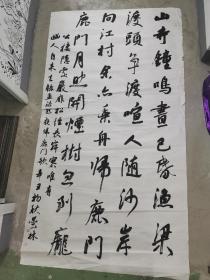 山寺鐘鳴晝已昏漁梁
渡頭爭渡喧人隨沙岸
向江村余亦乘舟歸鹿門
鹿門月照開煙樹忽到龐
公棲隱處巖扉松徑長寂寥唯有
幽人自來去 孟浩然夜歸鹿門歌 辛丑初秋